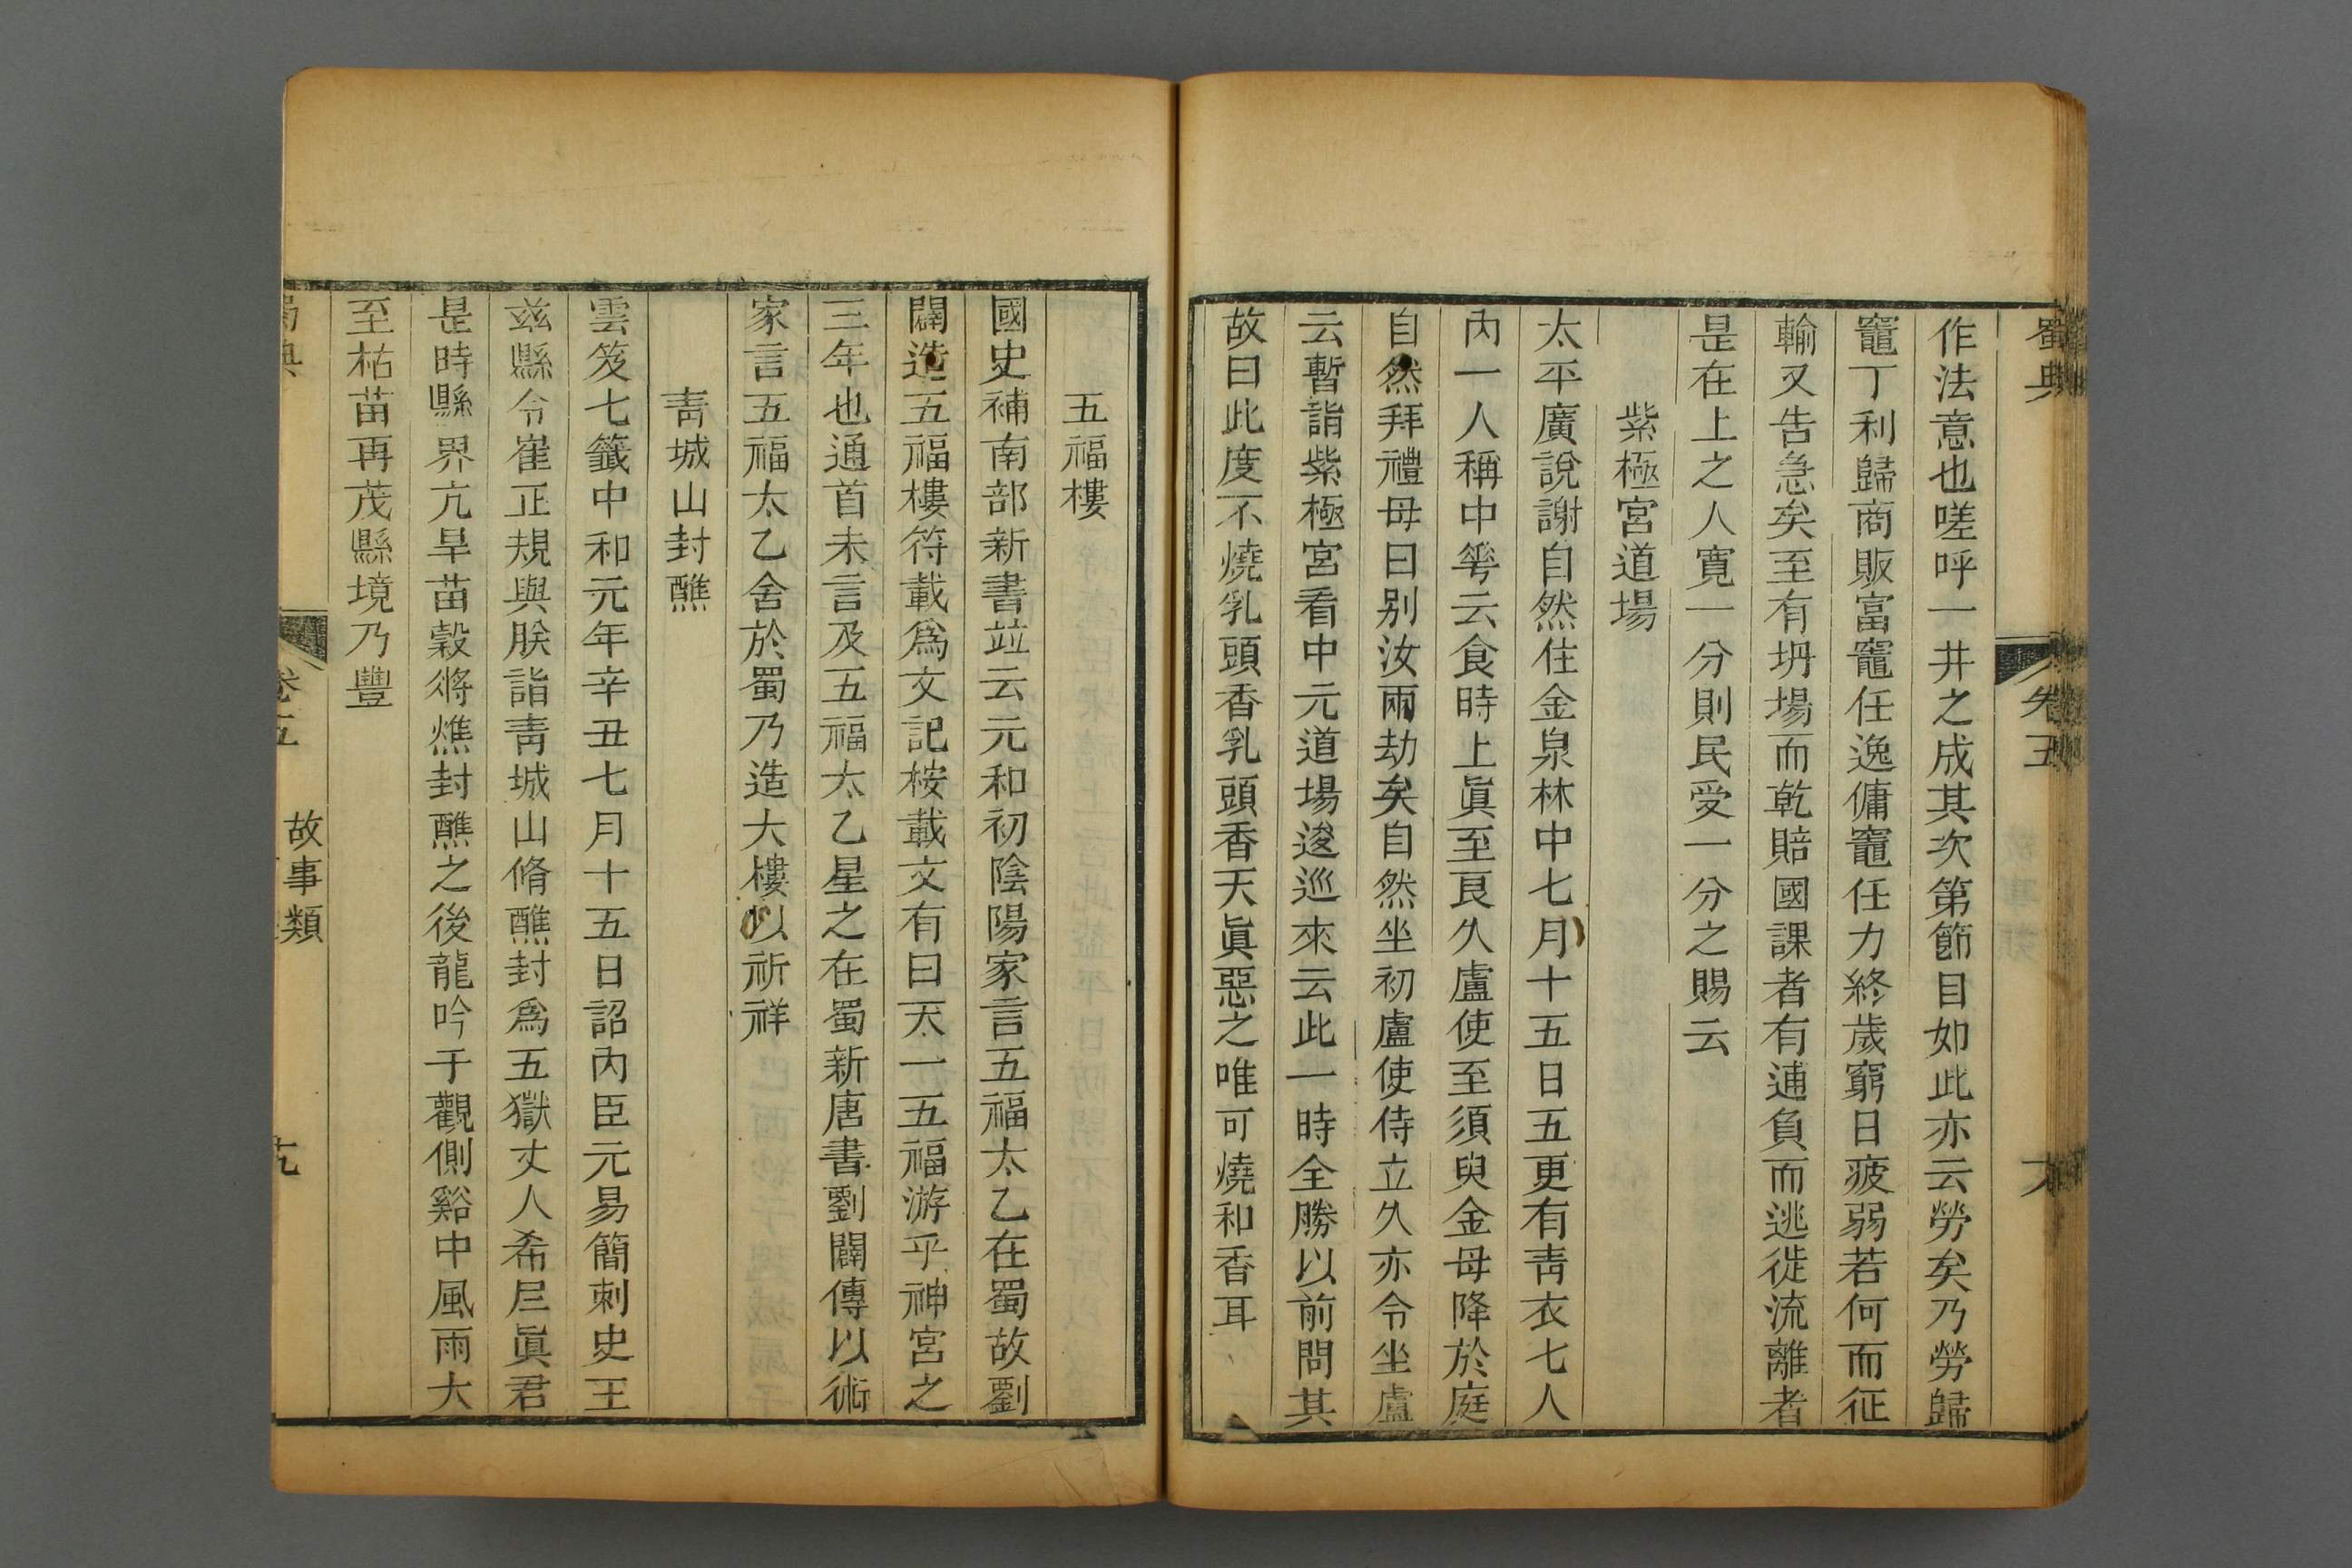 蜀典
卷五
作法意也嗟呼一井之成其次第節目如此亦云勞矣乃勞歸
竈丁利歸商販富竈任逸傭竈任力終歲窮日疲弱若何而征
輸又告急矣至有坍場而乾賠國課者有逋負而逃徙流離者
是在上之人寬一分則民受一分之賜云
紫極宮道場
太平廣說謝自然住金泉林中七月十五日五更有靑衣七人
內一人稱中華云食時上眞至艮久盧使至須臾金母降於庭
自然拜禮母曰別汝兩劫矣自然坐初盧使侍立久亦令坐盧
云暫詣紫極宮看中元道場逡巡來云此一時全勝以前問其
故曰此度不燒乳頭香乳頭香天眞惡之唯可燒和香耳
五福樓
國史補南部新書竝云元和初陰陽家言五福太乙在蜀故劉
闢造五福樓符載爲文記桉載文有曰天一五福游乎神宮之
三年也通首未言及五福太乙星之在蜀新唐書劉闢傳以術
家言五福太乙舍於蜀乃造大樓以祈祥
靑城山封醮
雲笈七籤中和元年辛丑七月十五日詔內臣元易簡刺史王
兹縣令崔正規與朕詣靑城山脩醮封爲五嶽丈人希尼眞君
是時縣界亢旱苗穀將燋封醮之後龍吟于觀側谿中風雨大
至枯苗再茂縣境乃豐
蜀典
卷五
故事類
十九